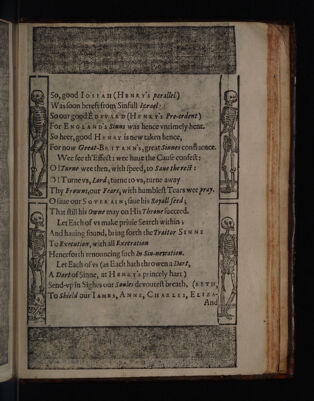 So, good IOSIAH (HENRY's parallel)
Was soon bereft from Sinfull Israel:
So our good EDWARD (HENRY's Præ-cedent)
For ENGLAND's Sinns was hence vntimely hent.
So heer, good HENRY is new taken hence,
For now Great-BRITANN's, great Sinnes confluence.
Wee see th'Effect: wee haue the Cause confest:
O! Turne wee then, with speed, to Saue the rest:
O! Turne vs, Lord; turne to vs, turne away
Thy Frowns, our Fears, with humblest Tears wee pray.
O saue our SOVERAIN; saue his Royall seed;
That still his Owne may on His Throne succeed.
Let Each of vs make priuie Search within
And hauing found, bring forth the Traitor SINNE
To Execution, with all Execration
Henceforth renouncing such In Sin-newation.
Let Each of vs (as Each hath throwen a Dart,
A Dart of Sinne, at HENRY's princely hart)
Send-vp in Sighes our Soules deuoutest breath, (BETH,
To Shield our IAMES, ANNE, CHARLES, ELIZA-
And